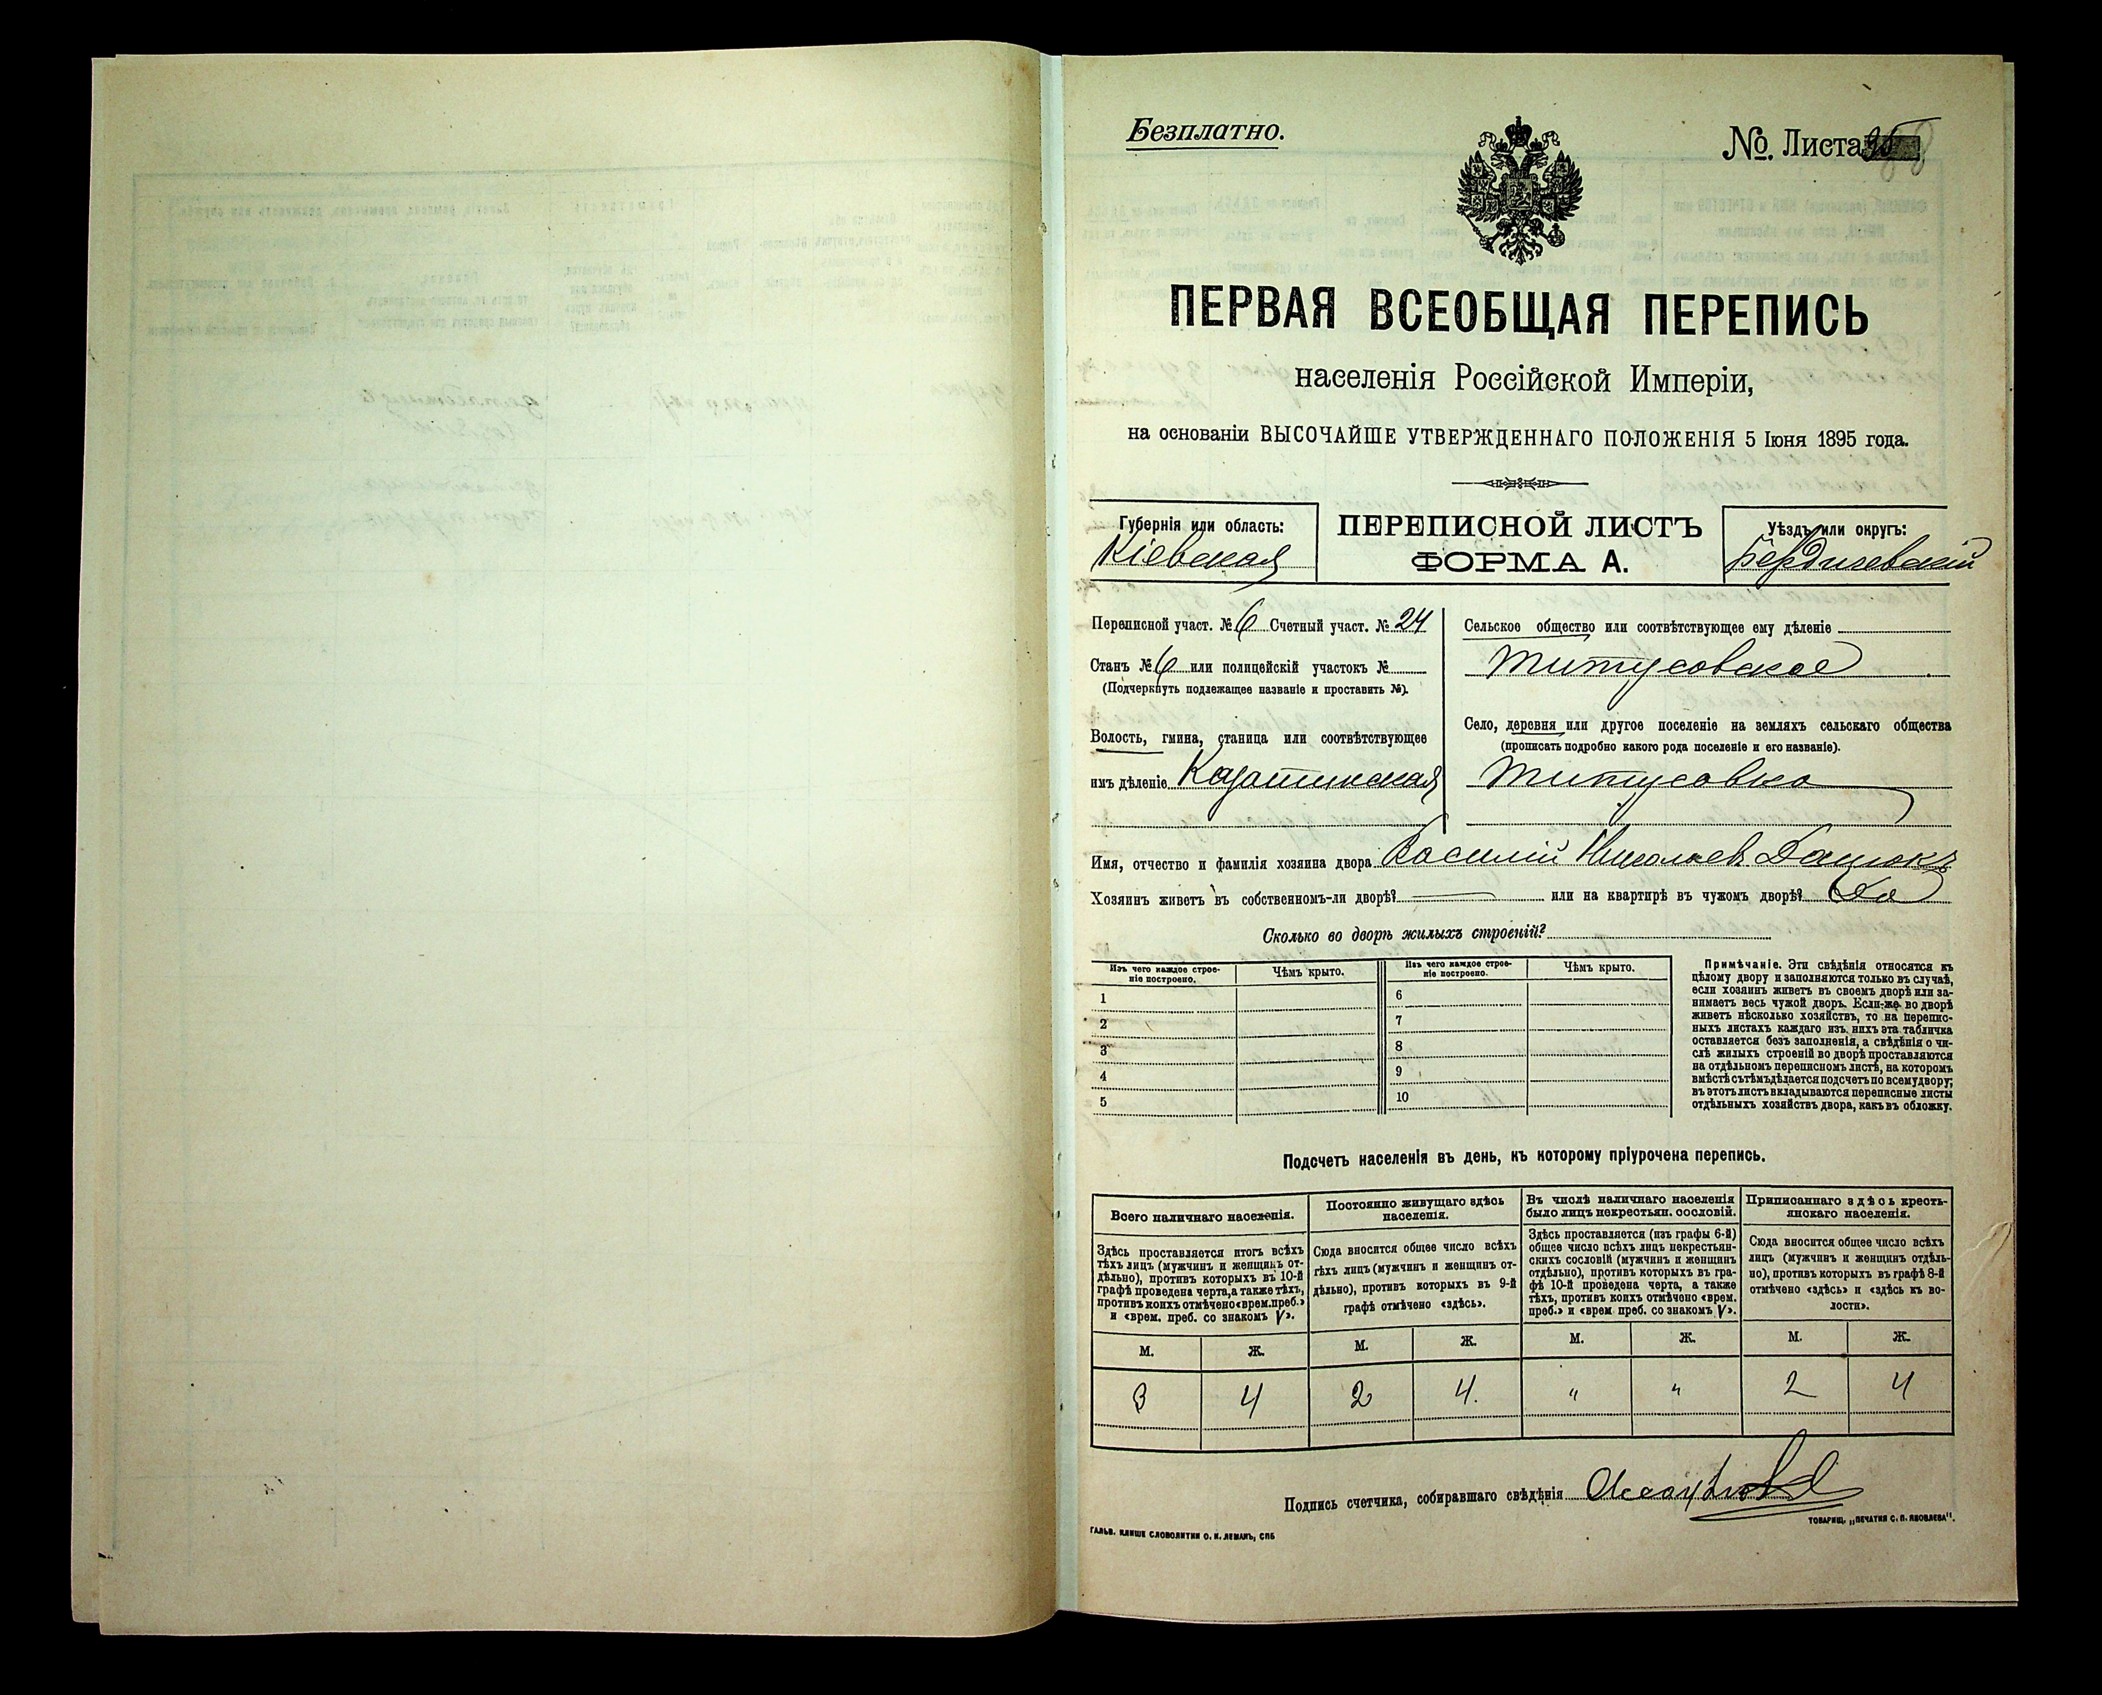 Безплатно.
№ Листа 95
ПЕРВАЯ ВСЕОБЩАЯ ПЕРЕПИСЬ
населенія Россійской Имперіи,
на основаніи ВЫСОЧАЙШЕ УТВЕРЖДЕННАГО ПОЛОЖЕНІЯ 5 Іюня 1895 года.
Губернія или область:
Кіевская
ПЕРЕПИСНОЙ ЛИСТЪ
ФОРМА А.
Уѣздъ или округъ:
Бердичевскій
Переписной участ. № 6 Счетный участ. № 24
Станъ № 6 или полицейскій участокъ №
(Подчеркнуть подлежащее названіе и проставить №).
Волость, гмина, станица или соотвѣтствующее
имъ дѣленіе Казатинская
Сельское общество или соотвѣтствующее ему дѣленіе
Титусовское
Село, деревня или другое поселеніе на земляхъ сельскаго общества
(прописать подробно какого рода поселеніе и его названіе).
Титусовка
Имя, отчество и фамилія хозяина двора Василій Николаев Дацюкъ
Хозяинъ живетъ въ собственномъ-ли дворѣ? или на квартирѣ въ чужомъ дворѣ? Да
Сколько во дворѣ жилыхъ строеній?
Изъ чего каждое строе-
ніе построено.
Чѣмъ крыто.
Изъ чего каждое строе-
ніе построено.
Чѣмъ крыто.
1
2
3
4
5
6
7
8
9
10
Примѣчаніе. Эти свѣдѣнія относятся къ
цѣлому двору и заполняются только въ случаѣ,
если хозяинъ живетъ въ своемъ дворѣ или за-
нимаетъ весь чужой дворъ. Если-же во дворѣ
живетъ нѣсколько хозяйствъ, то на перепис-
ныхъ листахъ каждаго изъ нихъ эта табличка
оставляется безъ заполненія, а свѣдѣнія о чи-
слѣ жилыхъ строеній во дворѣ проставляются
на отдѣльномъ переписномъ листѣ, на которомъ
вмѣстѣ съ тѣмъ дѣлается подсчетъ по всему двору;
въ этотъ листъ вкладываются переписные листы
отдѣльныхъ хозяйствъ двора, какъ въ обложку.
Подсчетъ населенія въ день, къ которому пріурочена перепись.
Всего наличнаго населенія.
Здѣсь проставляется итогъ всѣхъ
тѣхъ лицъ (мужчинъ и женщинъ от-
дѣльно), противъ которыхъ въ 10-й
графѣ проведена черта, а также тѣхъ,
противъ коихъ отмѣчено «врем. преб.»
и «врем. преб. со знакомъ V».
Постоянно живущаго здѣсь
населенія.
Сюда вносится общее число всѣхъ
тѣхъ лицъ (мужчинъ и женщинъ от-
дѣльно), противъ которыхъ въ 9-й
графѣ отмѣчено «здѣсь».
Въ числѣ наличнаго населенія
было лицъ некрестьян. сословій.
Здѣсь проставляется (изъ графы 6-й)
общее число всѣхъ лицъ некрестьян-
скихъ сословій (мужчинъ и женщинъ
отдѣльно), противъ которыхъ въ гра-
фѣ 10-й проведена черта, а также
тѣхъ, противъ коихъ отмѣчено «врем.
преб.» и «врем. преб. со знакомъ V».
Приписаннаго здѣсь кресть-
янскаго населенія.
Сюда вносится общее число всѣхъ
лицъ (мужчинъ и женщинъ отдѣль-
но), противъ которыхъ въ графѣ 8-й
отмѣчено «здѣсь» и «здѣсь въ во-
лости».
М. Ж. М. Ж. М. Ж. М. Ж.
3 4 2 4. " " 2 4
Подпись счетчика, собиравшаго свѣдѣнія
ГАЛЬВ. КЛИШЕ СЛОВОЛИТНИ О. И. ЛЕМАНЪ, СПБ
ТОВАРИЩ. „ПЕЧАТНЯ С. П. ЯКОВЛЕВА".